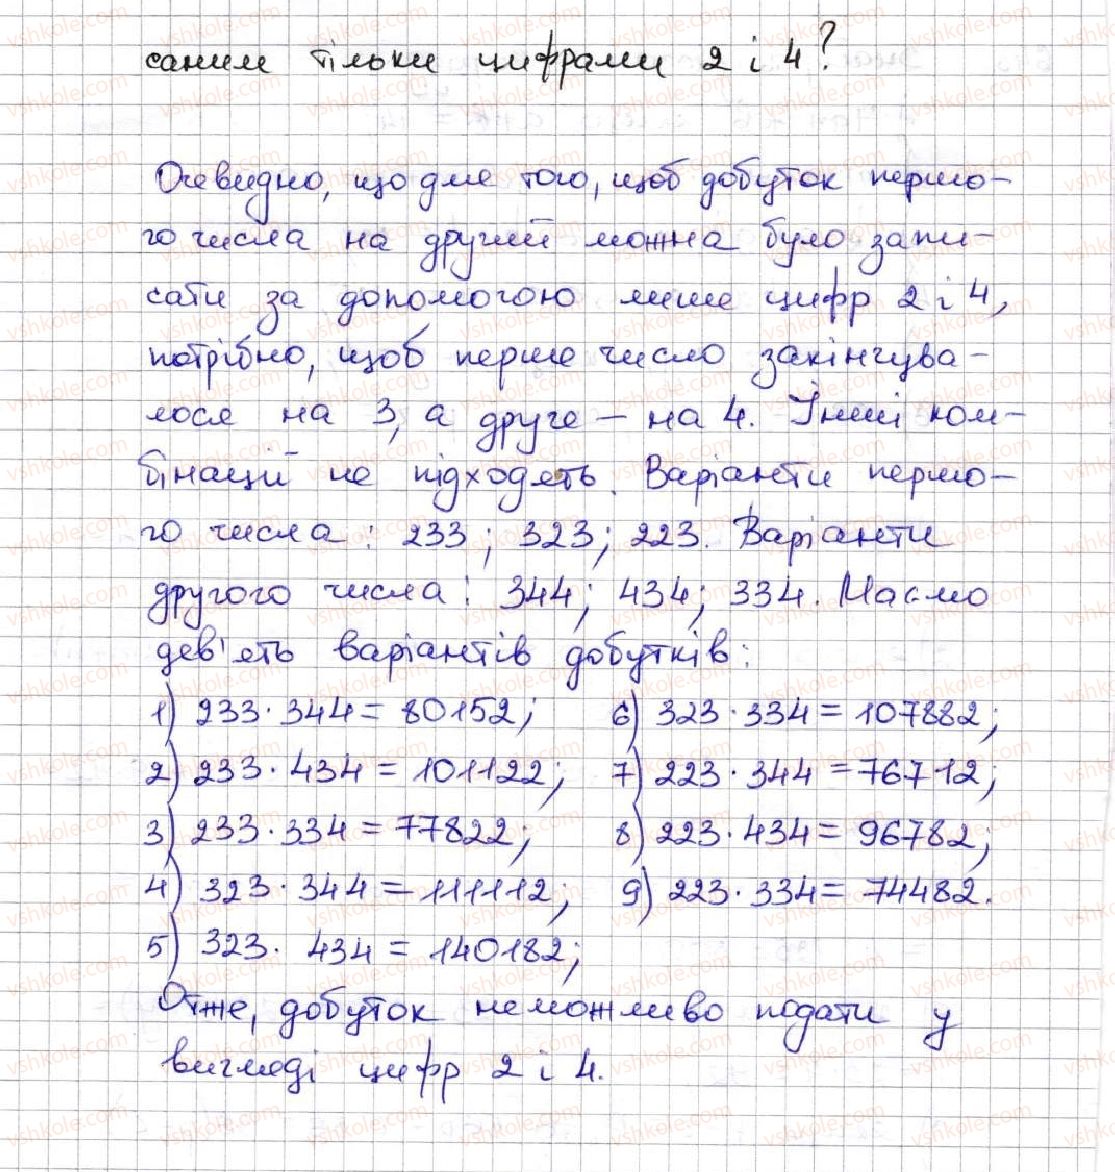 саним тільки цифрами 2 і 4?
Очевидно, що для того, щоб добуток першо-
го числа на другий можна було запи-
сати за допомогою лише цифр 2 і 4,
потрібно, щоб перше число закінчува-
лося на 3, а друге – на 4. Інші ком-
бінації не підходять. Варіанти першо-
го числа: 233; 323; 223. Варіанти
другого числа: 344; 434; 334. Маємо
дев'ять варіантів добутків:
1) 233 · 344 = 80152; 6) 323 · 334 = 107882;
2) 233 · 434 = 101122; 7) 223 · 344 = 76712;
3) 233 · 334 = 77822; 8) 223 · 434 = 96782;
4) 323 · 344 = 111112; 9) 223 · 334 = 74482.
5) 323 · 434 = 140182;
Отже, добуток неможливо подати у
вигляді цифр 2 і 4.